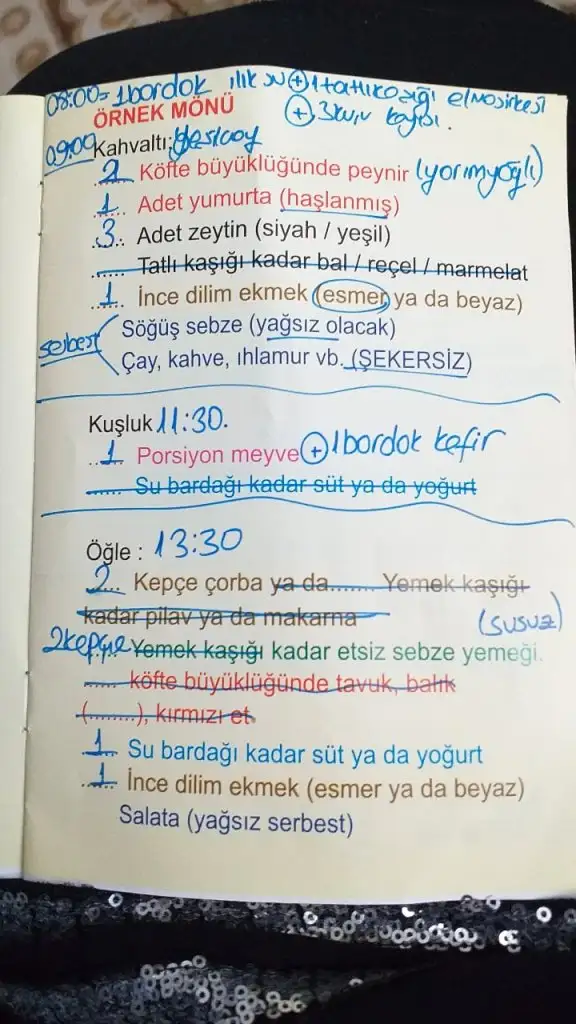 08:00= 1 bardak ılık su + 1 tatlı kaşığı elma sirkesi
ÖRNEK MÖNÜ + 3 kuru kayısı.
09:00 Kahvaltı: Yeşilçay
2 Köfte büyüklüğünde peynir (yarımyağlı)
1 Adet yumurta (haşlanmış)
3 Adet zeytin (siyah / yeşil)
...... Tatlı kaşığı kadar bal / reçel / marmelat
1 İnce dilim ekmek (esmer ya da beyaz)
serbest Söğüş sebze (yağsız olacak)
Çay, kahve, ıhlamur vb. (ŞEKERSİZ)
Kuşluk 11:30.
1 Porsiyon meyve + 1 bardak kefir
...... Su bardağı kadar süt ya da yoğurt
Öğle : 13:30
2 Kepçe çorba ya da........ Yemek kaşığı
kadar pilav ya da makarna
(susuz)
2 kepçe Yemek kaşığı kadar etsiz sebze yemeği.
...... köfte büyüklüğünde tavuk, balık
(........), kırmızı et
1 Su bardağı kadar süt ya da yoğurt
1 İnce dilim ekmek (esmer ya da beyaz)
Salata (yağsız serbest)